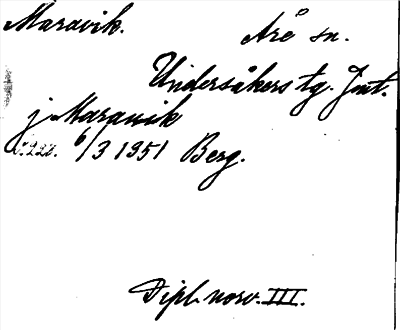 Maravik.
Åre sn.
Undersåkers tg. Jmt.
j Maravik
6/3 1951 Berg.
Dipl. norv. III.